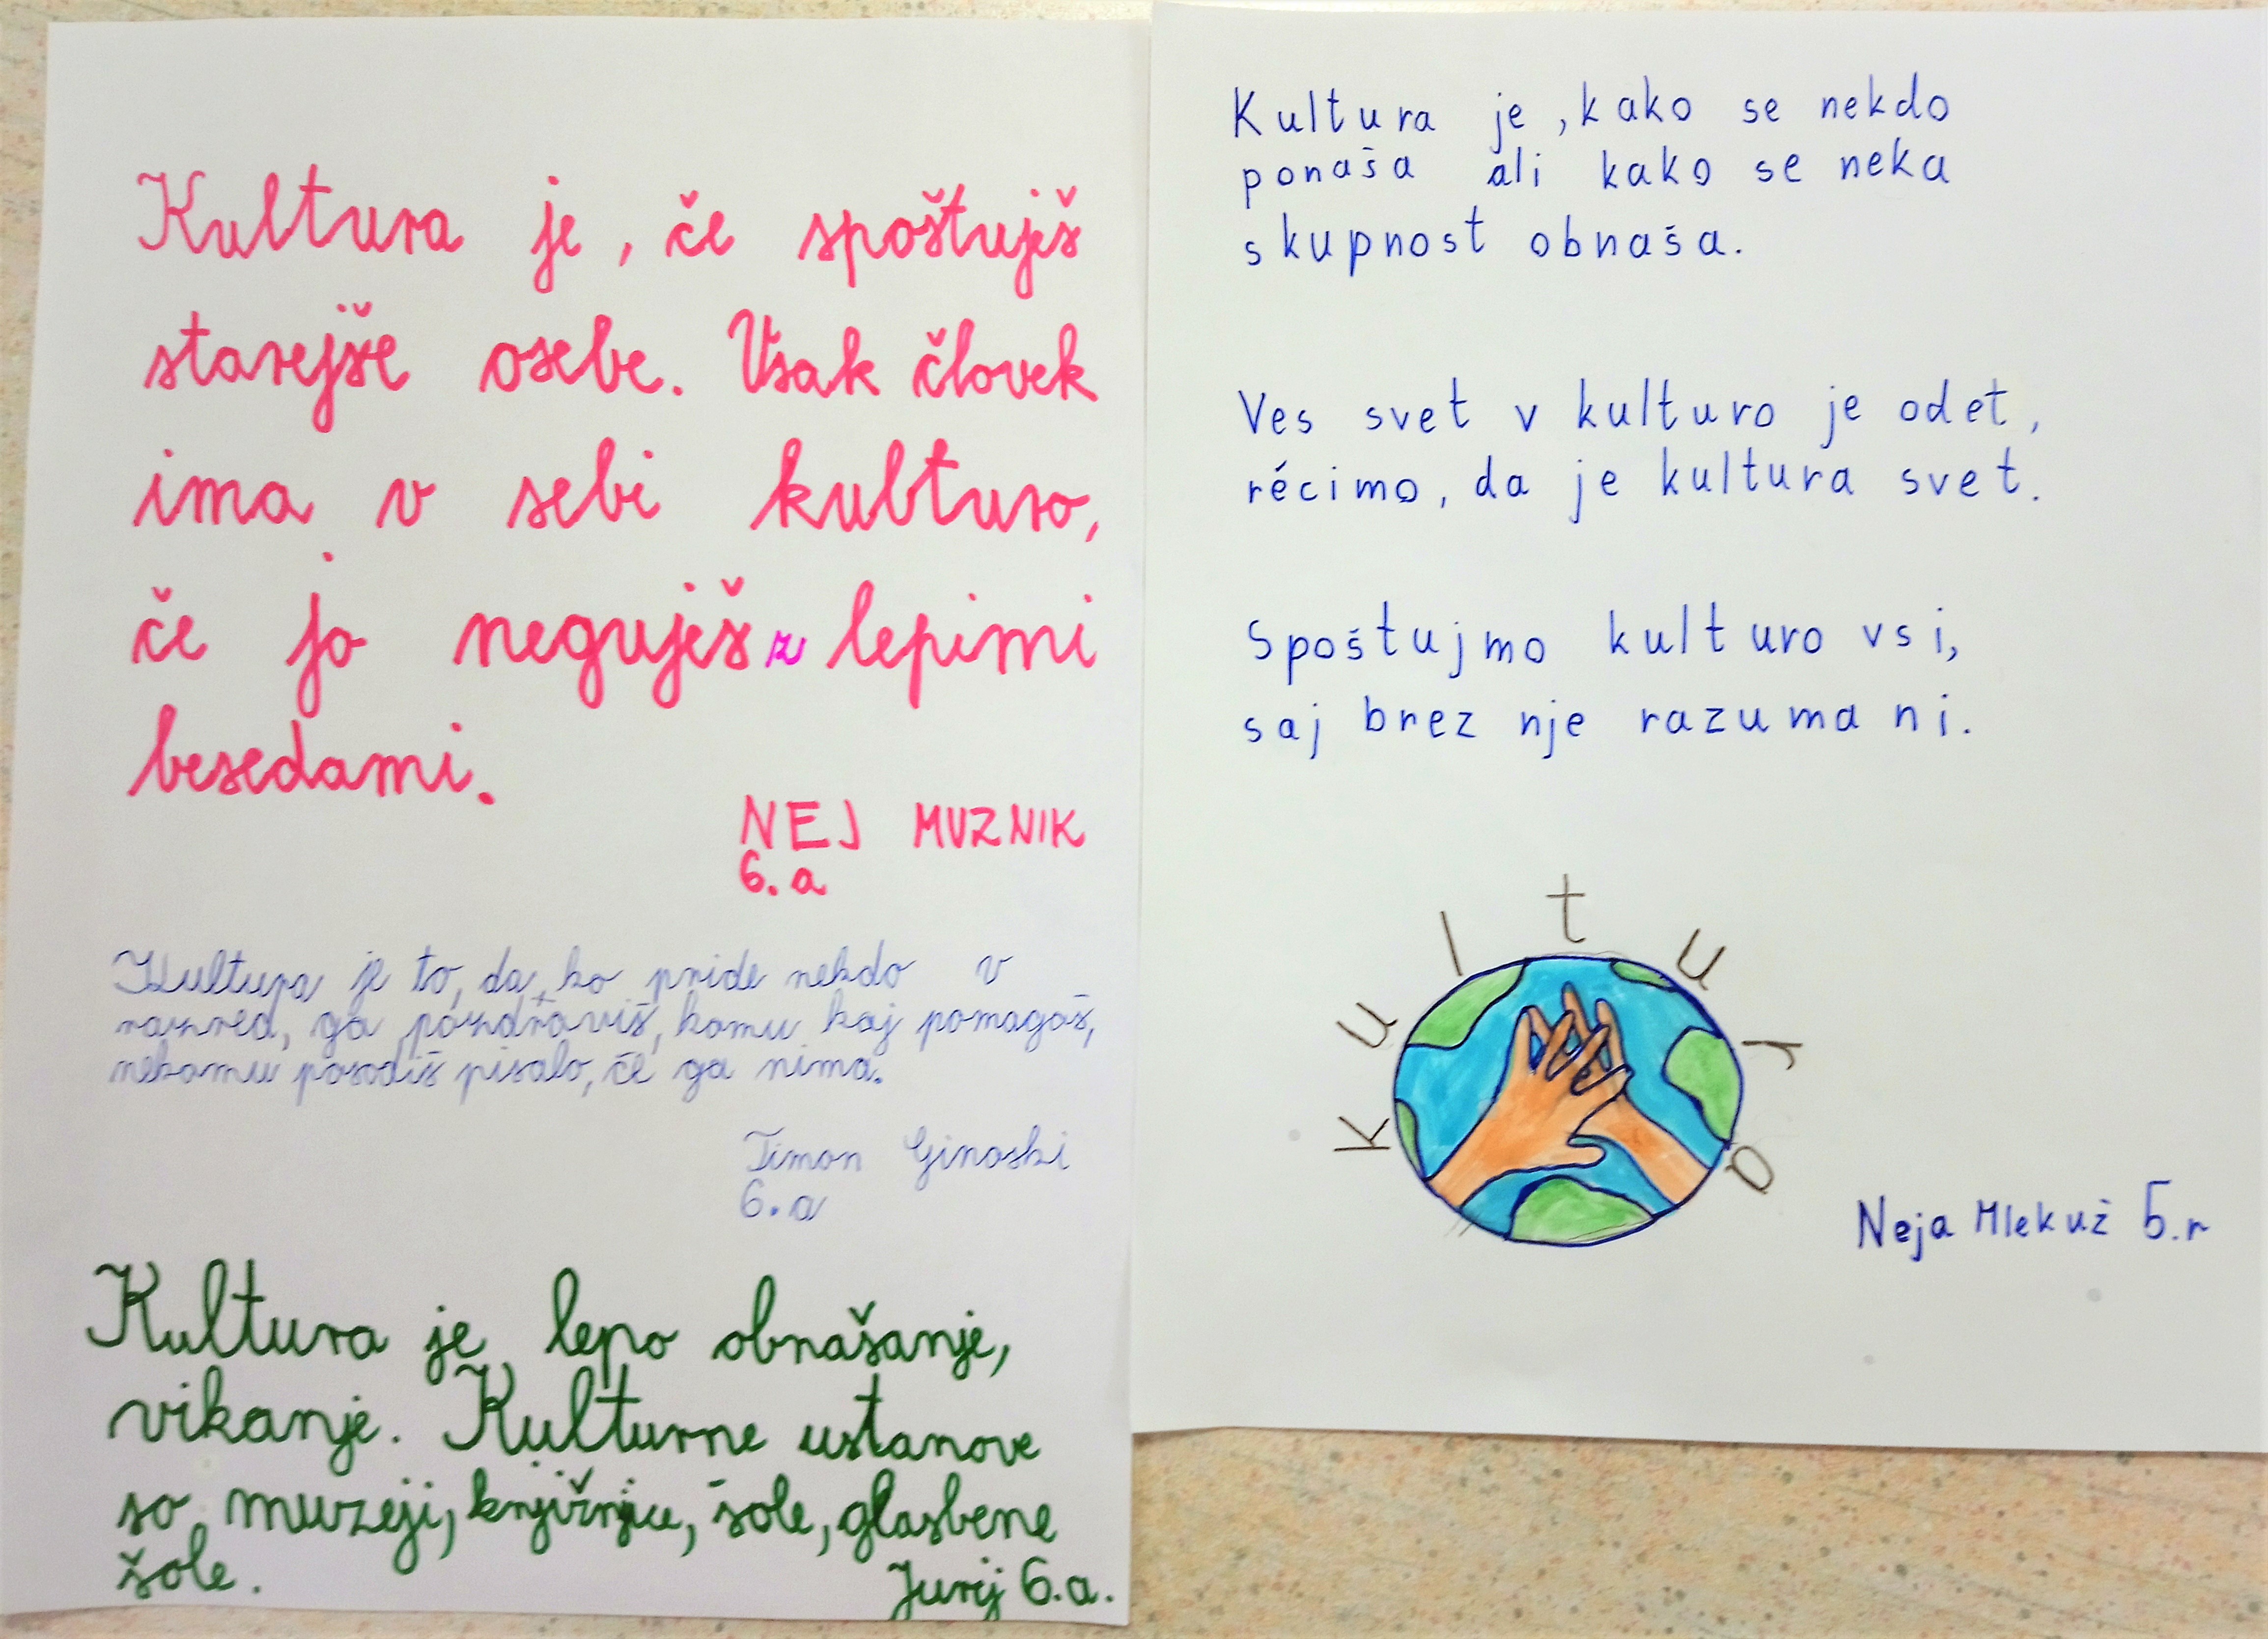 Kultura je, če spoštuješ
starejše osebe. Vsak človek
ima v sebi kulturo,
če jo neguješ z lepimi
besedami.
NEJ MUZNIK
6. a
Kultura je to, da, ko pride nekdo v
razred, ga pozdraviš, komu kaj pomagaš,
nekomu posodiš pisalo, če ga nima.
Timon Ginoski
6. a
Kultura je lepo obnašanje,
vikanje. Kulturne ustanove
so muzeji, knjižnjice, šole, glasbene
šole.
Jurij 6. a.
Kultura je, kako se nekdo
ponaša ali kako se neka
skupnost obnaša.
Ves svet v kulturo je odet,
récimo, da je kultura svet.
Spoštujmo kulturo vsi,
saj brez nje razuma ni.
Kultura
Neja Mlekuž 5. r